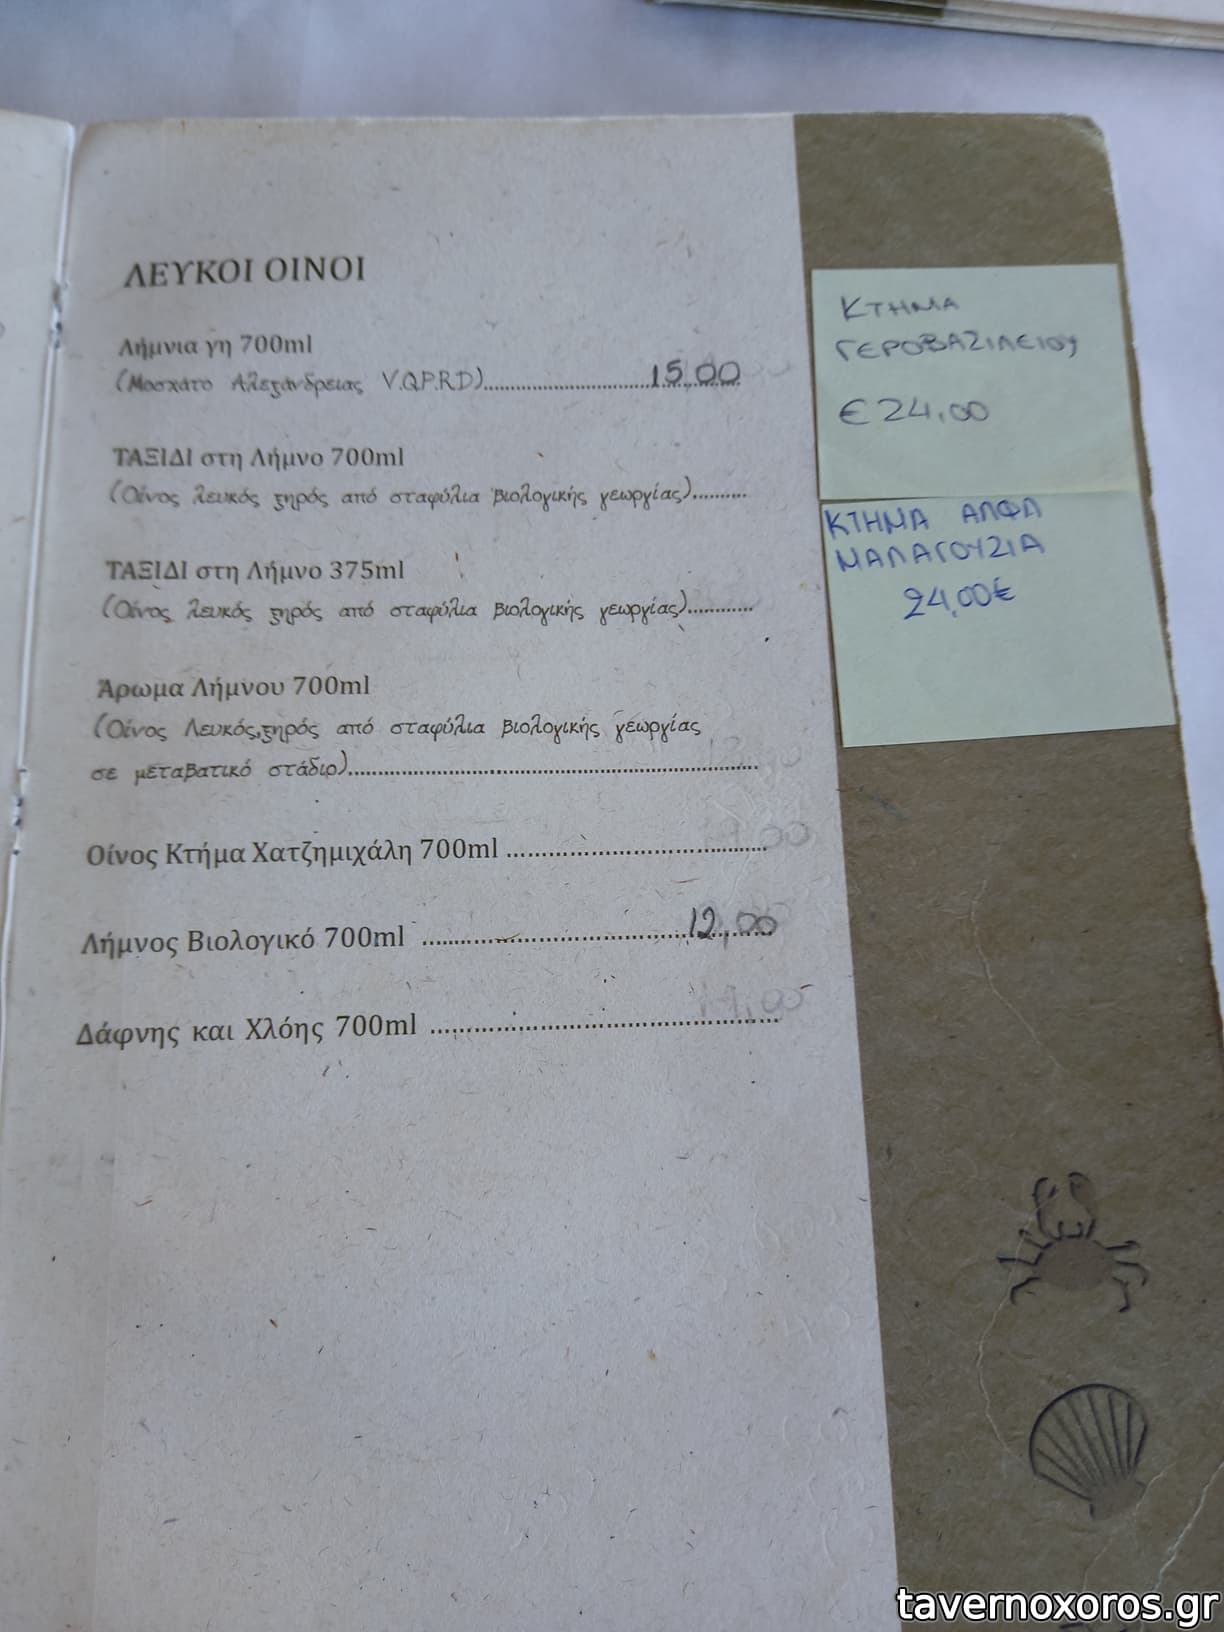 ΛΕΥΚΟΙ ΟΙΝΟΙ
Λήμνια γη 700ml
(Μοσχάτο Αλεξάνδρειας V.Q.P.R.D)........................ 15,00
ΤΑΞΙΔΙ στη Λήμνο 700ml
(Οίνος λευκός ξηρός από σταφύλια βιολογικής γεωργίας)..........
ΤΑΞΙΔΙ στη Λήμνο 375ml
(Οίνος λευκός ξηρός από σταφύλια βιολογικής γεωργίας)............
Άρωμα Λήμνου 700ml
(Οίνος Λευκός,ξηρός από σταφύλια βιολογικής γεωργίας
σε μεταβατικό στάδιο)......................................................
Οίνος Κτήμα Χατζημιχάλη 700ml ....................................
Λήμνος Βιολογικό 700ml .................................... 12,00
Δάφνης και Χλόης 700ml ....................................
ΚΤΗΜΑ
ΓΕΡΟΒΑΣΙΛΕΙΟΥ
€24,00
ΚΤΗΜΑ ΑΛΦΑ
ΜΑΛΑΓΟΥΖΙΑ
24,00€
tavernoxoros.gr